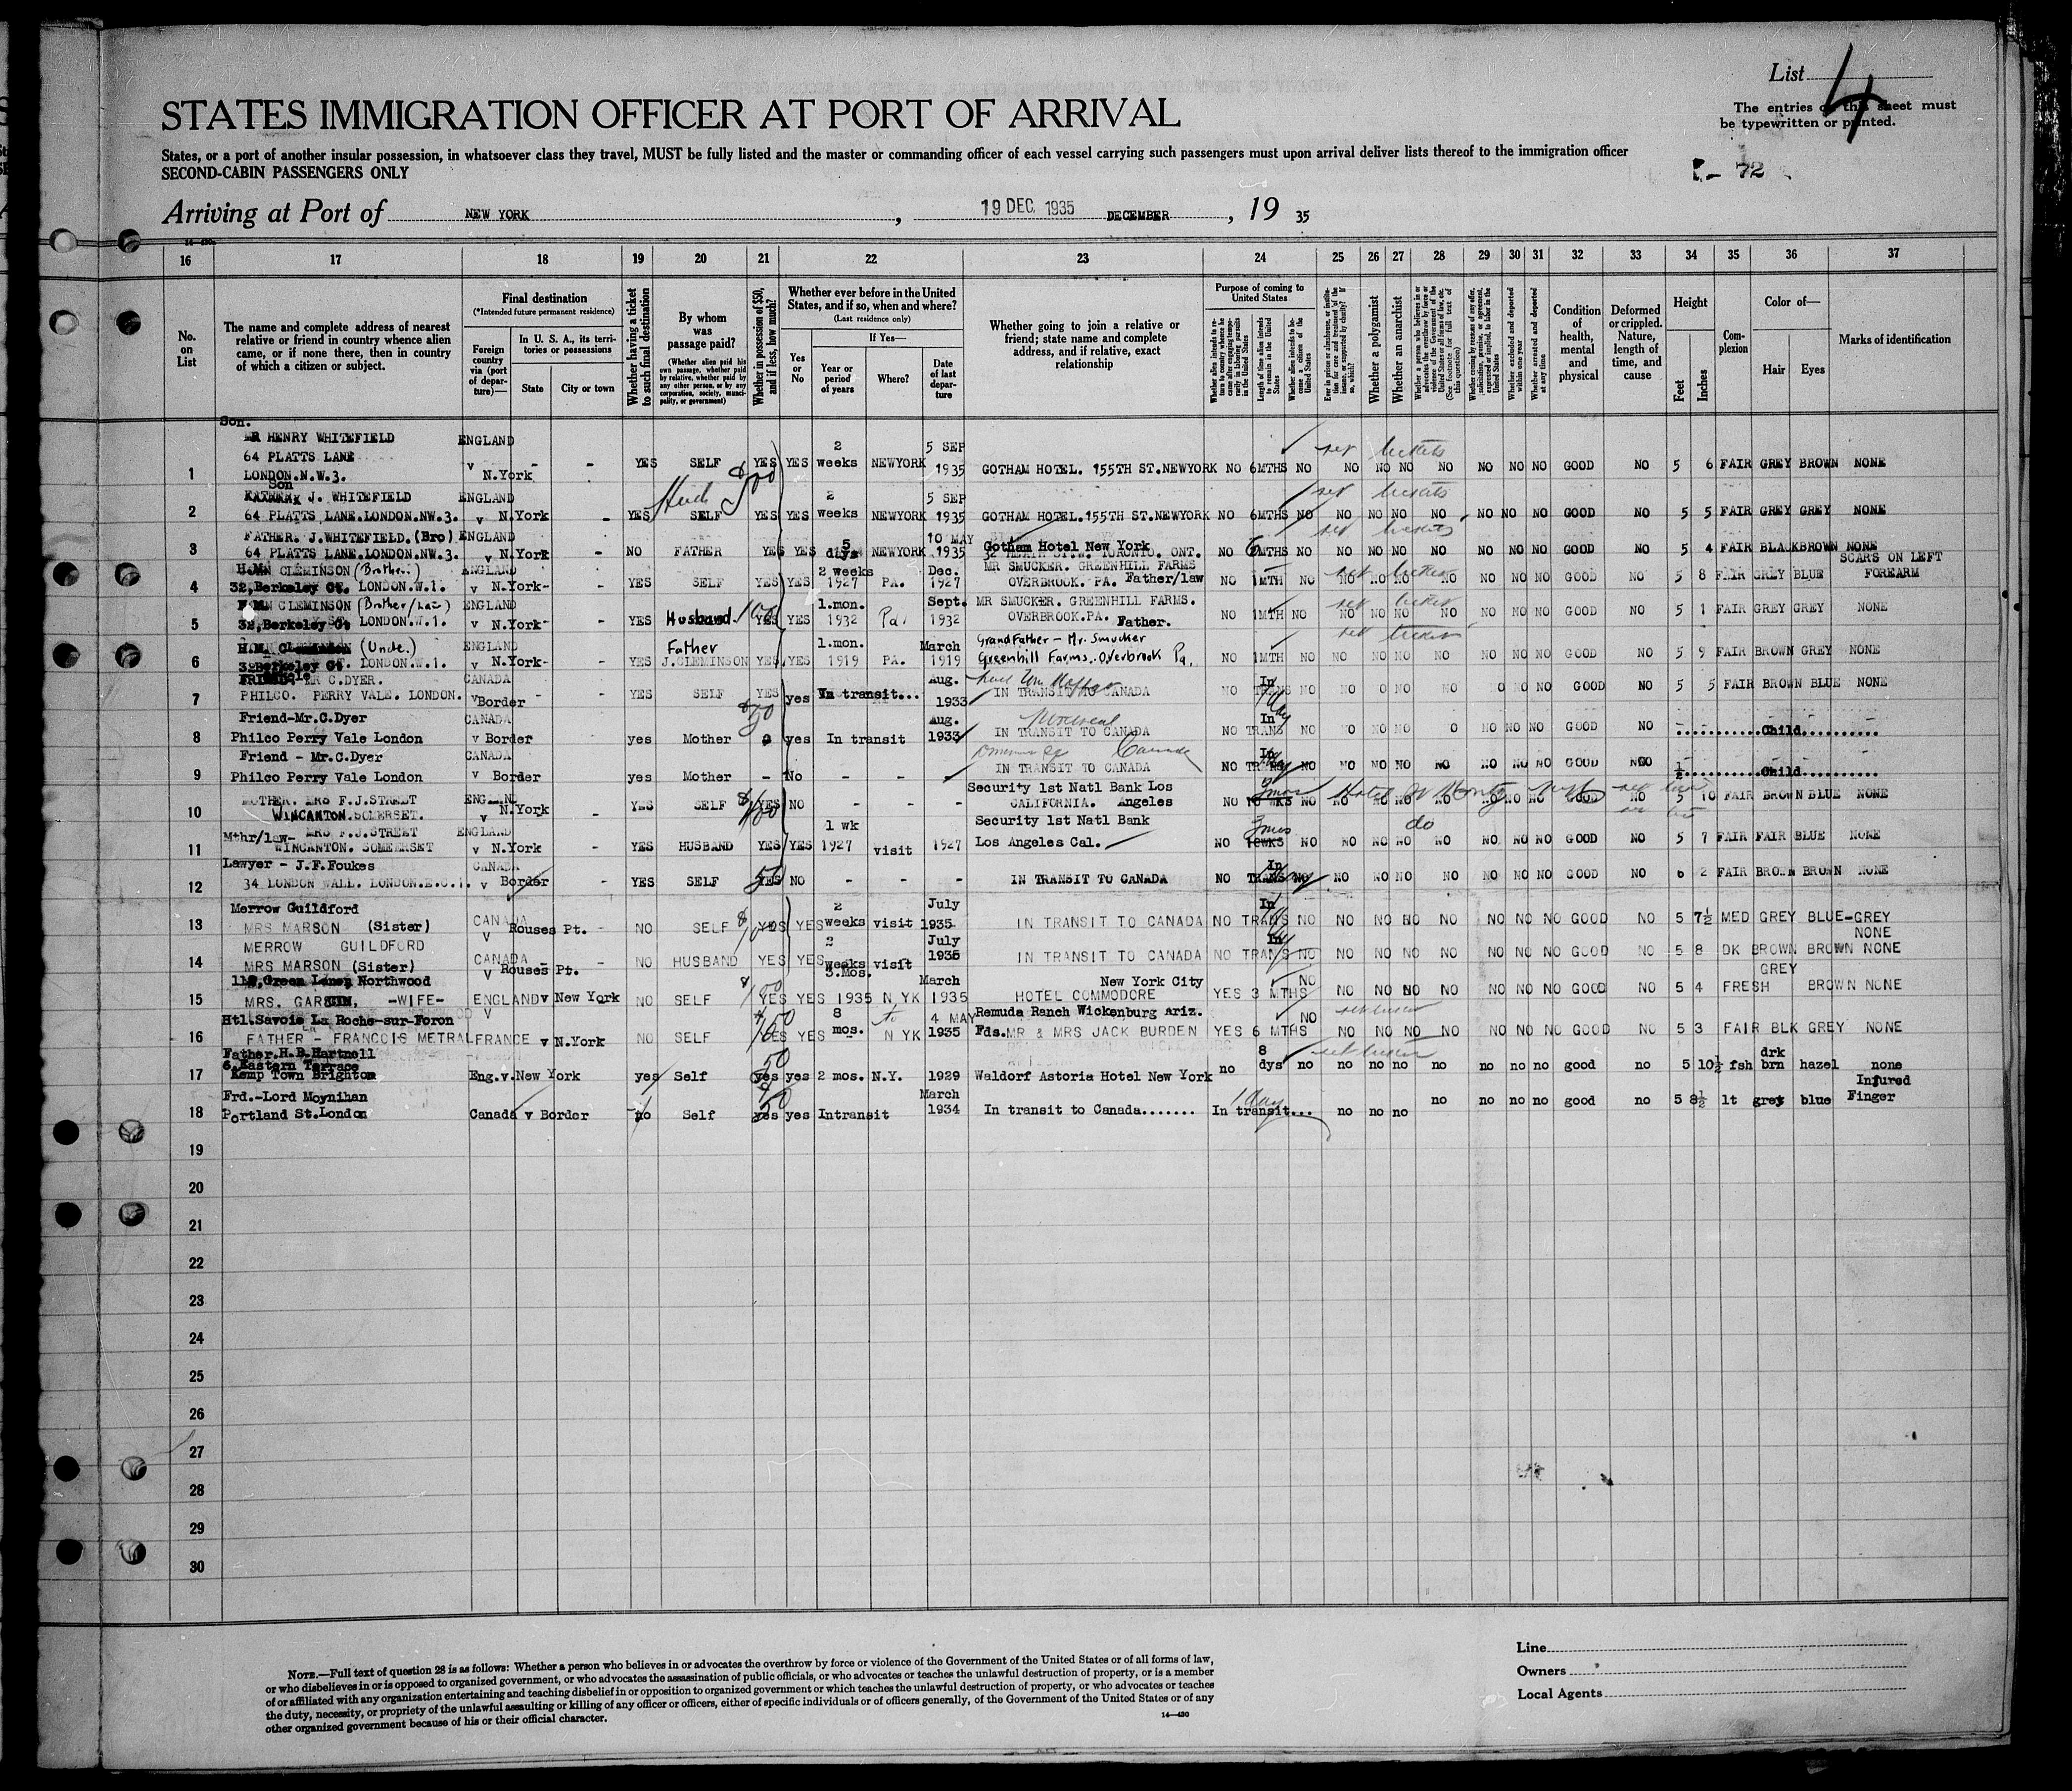 List 4
The entries on this sheet must
be typewritten or printed.
STATES IMMIGRATION OFFICER AT PORT OF ARRIVAL
States, or a port of another insular possession, in whatsoever class they travel, MUST be fully listed and the master or commanding officer of each vessel carrying such passengers must upon arrival deliver lists thereof to the immigration officer
SECOND-CABIN PASSENGERS ONLY
72
Arriving at Port of NEW YORK, 19 DEC 1935 DECEMBER, 19 35
16 17 18 19 20 21 22 23 24 25 26 27 28 29 30 31 32 33 34 35 36 37
No. on List
The name and complete address of nearest relative or friend in country whence alien came, or if none there, then in country of which a citizen or subject.
Final destination
(*Intended future permanent residence)
Foreign country via (port of departure)—
In U. S. A., its territories or possessions
State
City or town
Whether having a ticket to such final destination
By whom was passage paid?
(Whether alien paid his own passage, whether paid by relative, whether paid by any other person, or by any corporation, society, municipality, or government)
Whether in possession of $50, and if less, how much?
Whether ever before in the United States, and if so, when and where?
(Last residence only)
Yes or No
If Yes—
Year or period of years
Where?
Date of last departure
Whether going to join a relative or friend; state name and complete address, and if relative, exact relationship
Purpose of coming to United States
Length of time alien intends to remain in the United States
Whether alien intends to become a citizen of the United States
Whether a polygamist
Whether an anarchist
Whether excluded and deported within one year
Whether arrested and deported at any time
Condition of health, mental and physical
Deformed or crippled. Nature, length of time, and cause
Height
Feet
Inches
Complexion
Color of—
Hair
Eyes
Marks of identification
Son.
MR HENRY WHITEFIELD ENGLAND 2 5 SEP
64 PLATTS LANE v - - YES SELF YES YES weeks NEWYORK 1935 GOTHAM HOTEL. 155TH ST.NEWYORK NO 6MTHS NO NO NO NO NO NO NO NO GOOD NO 5 6 FAIR GREY BROWN NONE
1 LONDON.N.W.3. N.York
Son
J. WHITEFIELD ENGLAND 2 5 SEP
2 64 PLATTS LANE.LONDON.NW.3. v N.York - YES SELF YES YES weeks NEWYORK 1935 GOTHAM HOTEL.155TH ST.NEWYORK NO 6MTHS NO NO NO NO NO NO NO NO GOOD NO 5 5 FAIR GREY GREY NONE
FATHER. J.WHITEFIELD.(Bro) ENGLAND 5 10 MAY Gotham Hotel New York
3 64 PLATTS LANE.LONDON.NW.3. v N.York - NO FATHER YES YES days NEWYORK 1935 TORONTO. ONT. NO 6MTHS NO NO NO NO NO NO NO NO GOOD NO 5 4 FAIR BLACK BROWN NONE
CLEMINSON (Brother) ENGLAND 2 weeks Dec. MR SMUCKER. GREENHILL FARMS SCARS ON LEFT
4 32,Berkeley Ct. LONDON.W.1. v N.York- - YES SELF YES YES 1927 PA. 1927 OVERBROOK. PA. Father/law NO 1MTH NO NO NO NO NO NO NO NO GOOD NO 5 8 FAIR GREY BLUE FOREARM
CLEMINSON (Brother/law) ENGLAND 1.mon. Sept. MR SMUCKER. GREENHILL FARMS.
5 32,Berkeley Ct LONDON.W.1. v N.York- - YES Husband. 100 YES YES 1932 Pa. 1932 OVERBROOK.PA. Father. NO 1MTH NO NO NO NO NO NO NO NO GOOD NO 5 1 FAIR GREY GREY NONE
(Uncle.) ENGLAND Father 1.mon. March GrandFather - Mr. Smucker
6 32Berkeley Ct. LONDON.W.1. v N.York- - YES J.CLEMINSON YES YES 1919 PA. 1919 Greenhill Farms. Overbrook Pa. NO 1MTH NO NO NO NO NO NO NO NO GOOD NO 5 9 FAIR BROWN GREY NONE
MR C.DYER. CANADA Aug. In
7 PHILCO. PERRY VALE. LONDON. v Border - - YES SELF YES yes In transit... 1933 IN TRANSIT TO CANADA NO TRANS NO NO NO NO NO NO NO GOOD NO 5 5 FAIR BROWN BLUE NONE
Friend-Mr.C.Dyer CANADA 50 Aug. Montreal In
8 Philco Perry Vale London v Border yes Mother yes In transit 1933 IN TRANSIT TO CANADA NO TRANS NO NO NO NO NO NO GOOD NO ............Child...........
Friend - Mr.C.Dyer CANADA Canada In
9 Philco Perry Vale London v Border yes Mother - No - - - IN TRANSIT TO CANADA NO TRANS NO NO NO NO NO NO NO NO GOOD NO ............Child...........
MOTHER. MRS F.J.STREET ENGLAND Security 1st Natl Bank Los 3mos
10 WINCANTON.SOMERSET. v N.York - YES SELF YES NO - - - CALIFORNIA. Angeles NO 10 WKS NO NO NO NO NO NO NO NO GOOD NO 5 10 FAIR BROWN BLUE NONE
Mthr/law- MRS F.J.STREET ENGLAND 1 wk Security 1st Natl Bank 3mos do
11 WINCANTON. SOMERSET v N.York - YES HUSBAND YES YES 1927 visit 1927 Los Angeles Cal. NO 10WKS NO NO NO NO NO NO NO NO GOOD NO 5 7 FAIR FAIR BLUE NONE
Lawyer - J.F.Foukes CANADA In
12 34 LONDON WALL. LONDON.E.C.1. v Border - YES SELF YES NO - - - IN TRANSIT TO CANADA NO TRANS NO NO NO NO NO NO NO NO GOOD NO 6 2 FAIR BROWN BROWN NONE
Merrow Guildford 2 July In
13 MRS MARSON (Sister) CANADA v Rouses Pt. - NO SELF YES YES weeks visit 1935 IN TRANSIT TO CANADA NO TRANS NO NO NO NO NO NO NO NO GOOD NO 5 7½ MED GREY BLUE-GREY NONE
MERROW GUILDFORD 2 July In
14 MRS MARSON (Sister) CANADA v Rouses Pt. - NO HUSBAND YES YES weeks visit 1935 IN TRANSIT TO CANADA NO TRANS NO NO NO NO NO NO NO NO GOOD NO 5 8 DK BROWN BROWN NONE
Green Lane, Northwood 3.Mos. March New York City GREY
15 MRS. -WIFE- ENGLAND v New York NO SELF YES YES 1935 N YK 1935 HOTEL COMMODORE YES 3 MTHS NO NO NO NO NO NO NO NO GOOD NO 5 4 FRESH BROWN NONE
Htl.Savoie La Roche-sur-Foron 8 4 MAY Remuda Ranch Wickenburg Ariz.
16 FATHER - FRANCOIS METRAL FRANCE v N.York NO SELF YES YES mos. N YK 1935 Fds.MR & MRS JACK BURDEN YES 6 MTHS NO NO NO NO NO NO NO NO GOOD NO 5 3 FAIR BLK GREY NONE
Father.H.B.Hartnell 50 8 drk
6,Eastern Terrace
17 Kemp Town Brighton Eng.v.New York yes Self yes yes 2 mos. N.Y. 1929 Waldorf Astoria Hotel New York no dys no no no no no no no no good no 5 10½ fsh brn hazel none
Frd.-Lord Moynihan 50 March 1 day Injured
18 Portland St.London Canada v Border no Self yes yes Intransit 1934 In transit to Canada....... In transit... no no no no no no no good no 5 8½ lt grey blue Finger
19
20
21
22
23
24
25
26
27
28
29
30
NOTE.—Full text of question 28 is as follows: Whether a person who believes in or advocates the overthrow by force or violence of the Government of the United States or of all forms of law,
or who disbelieves in or is opposed to organized government, or who advocates the assassination of public officials, or who advocates or teaches the unlawful destruction of property, or is a member
of or affiliated with any organization entertaining and teaching disbelief in or opposition to organized government or which teaches the unlawful destruction of property, or who advocates or teaches
the duty, necessity, or propriety of the unlawful assaulting or killing of any officer or officers, either of specific individuals or of officers generally, of the Government of the United States or of any
other organized government because of his or their official character.
14—430
Line
Owners
Local Agents